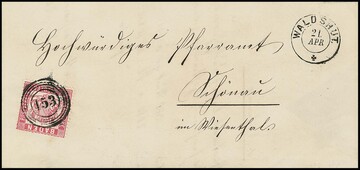 WALDSHUT
21
APR
Hochwürdiges Pfarramt
Schönau
im Wiesenthal.
153
BADEN